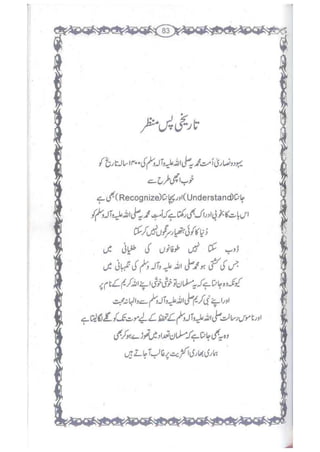 83
تاریخی پس منظر
یہود و نصاریٰ اُمت محمدیہ صلی اللہ علیہ وآلہ وسلم کی ۱۴۰۰ سالہ تاریخ کو
خوب اچھی طرح سے
جانتا (Understand) اور پہچانتا (Recognize) بھی ہے
اس بات کا بخوبی ادراک بھی رکھتا ہے کہ اُمتِ محمدیہ صلی اللہ علیہ وآلہ وسلم کو
دُنیا کا کوئی ہتھیار سرنگوں نہیں کر سکتا
ڈوب سکتا نہیں طوفانوں کی طغیانی میں
جس کی کشتی ہو محمد صلی اللہ علیہ وآلہ وسلم کی نگہبانی میں
کیونکہ وہ جانتا ہے کہ یہ مسلمان تو خوشی خوشی اپنے اللہ کریم کے نام پر
اور اپنے نبی کریم صلی اللہ علیہ وآلہ وسلم سے والہانہ محبت
اور ناموسِ رسالت صلی اللہ علیہ وآلہ وسلم کے تحفظ کے لیے موت تک کو گلے لگا لیتا ہے
وہ یہ بھی جانتا ہے کہ مسلمان تعداد میں تھوڑے ہو کر بھی
ہماری بھاری اکثریت پر غالب آ جاتے ہیں